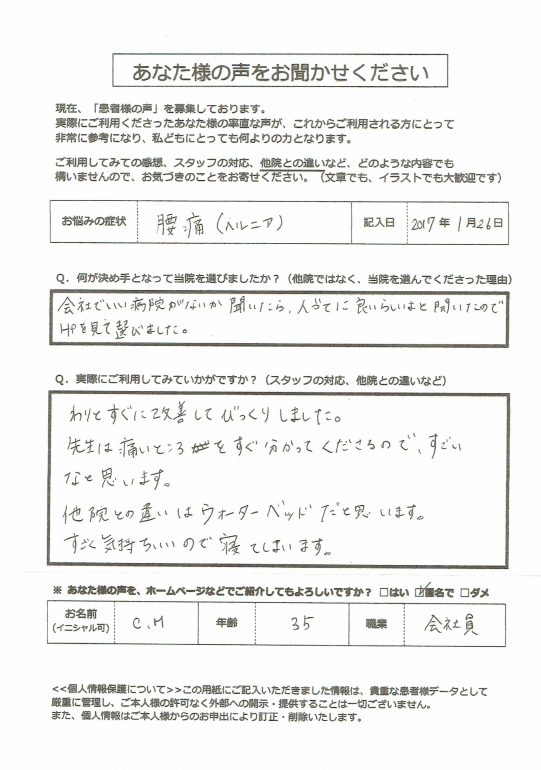 あなた様の声をお聞かせください
現在、「患者様の声」を募集しております。
実際にご利用くださったあなた様の率直な声が、これからご利用される方にとって
非常に参考になり、私どもにとっても何よりの力となります。
ご利用してみての感想、スタッフの対応、他院との違いなど、どのような内容でも
構いませんので、お気づきのことをお寄せください。（文章でも、イラストでも大歓迎です）
お悩みの症状 腰痛（ヘルニア） 記入日 2017年 1月26日
Q．何が決め手となって当院を選びましたか？（他院ではなく、当院を選んでくださった理由）
会社でいい病院がないか聞いたら、人づてに良いらしいよと聞いたので
HPを見て選びました。
Q．実際にご利用してみていかがですか？（スタッフの対応、他院との違いなど）
わりとすぐに改善してびっくりしました。
先生は痛いところをすぐ分かってくださるので、すごい
なと思います。
他院との違いはウォーターベッドだと思います。
すごく気持ちいいので寝てしまいます。
※ あなた様の声を、ホームページなどでご紹介してもよろしいですか？ □はい ☑匿名で □ダメ
お名前 C.M 年齢 35 職業 会社員
(イニシャル可)
<<個人情報保護について>>この用紙にご記入いただきました情報は、貴重な患者様データとして
厳重に管理し、ご本人様の許可なく外部への開示・提供することは一切ございません。
また、個人情報はご本人様からのお申出により訂正・削除いたします。